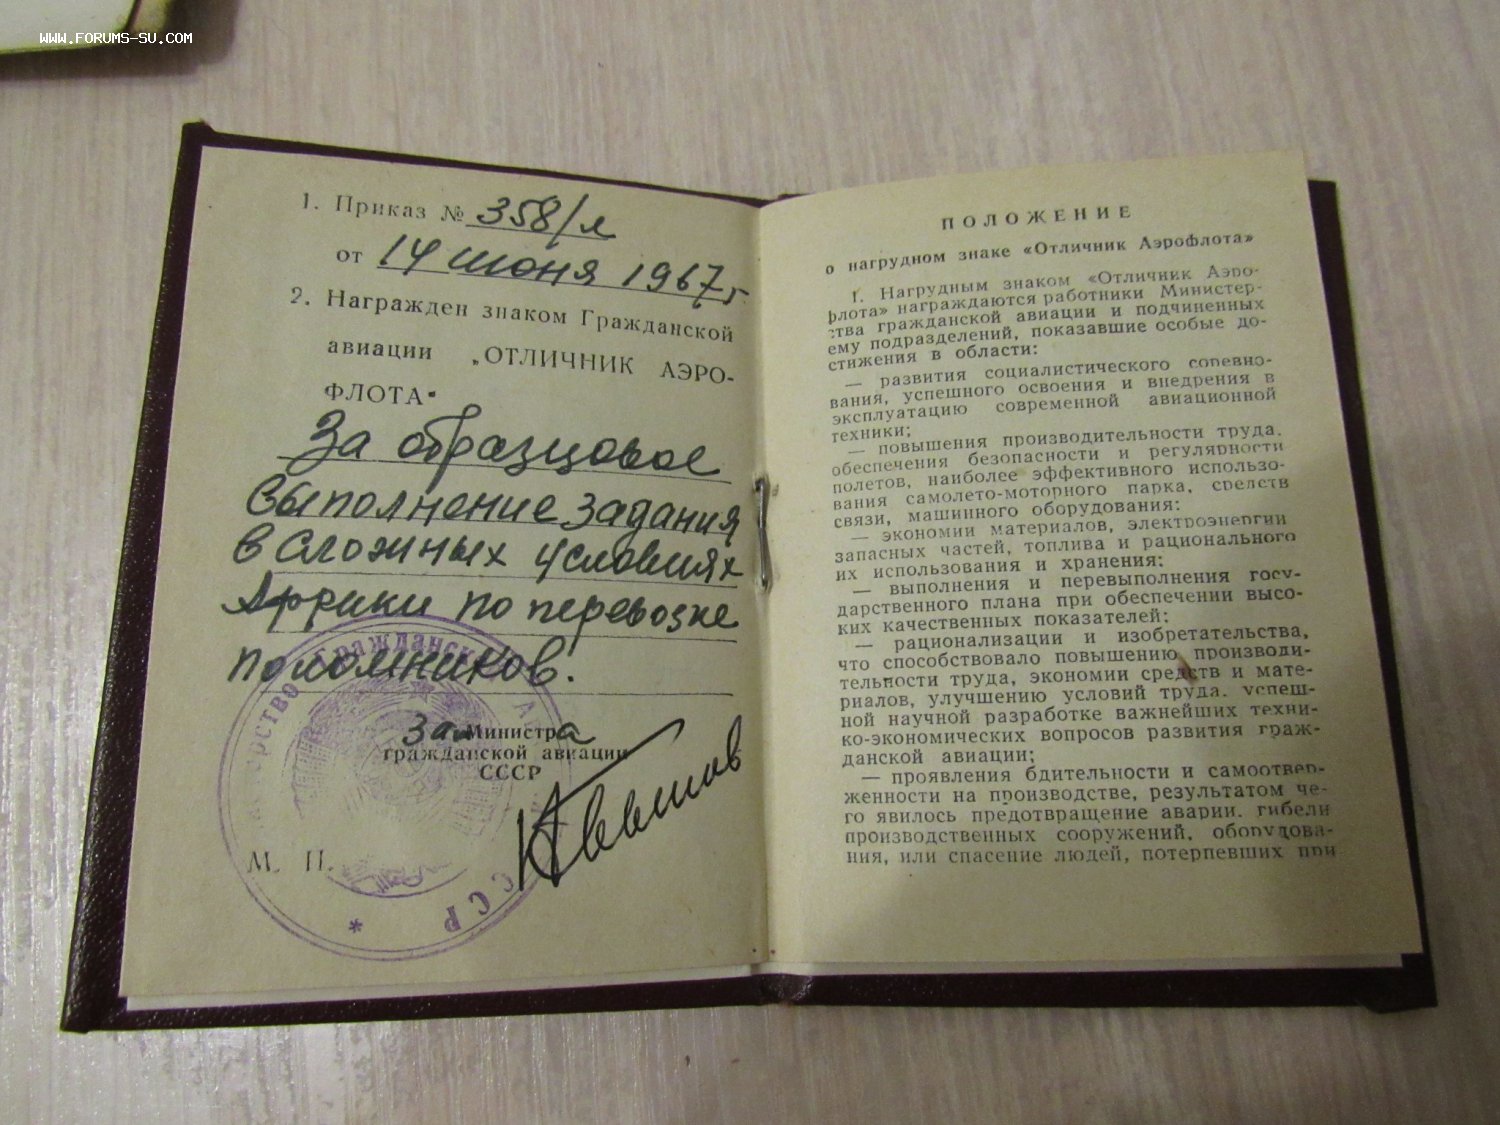 WWW.FORUMS-SU.COM
1. Приказ № 358/л
от 14 июня 1967 г.
2. Награжден знаком Гражданской
авиации „ОТЛИЧНИК АЭРО-
ФЛОТА"
За образцовое
выполнение задания
в сложных условиях
Африки по перевозке
паломников.
Зам Министра
гражданской авиации
СССР
М. П.
СССР
ПОЛОЖЕНИЕ
о нагрудном знаке «Отличник Аэрофлота»
1. Нагрудным знаком «Отличник Аэро-
флота» награждаются работники Министер-
ства гражданской авиации и подчиненных
ему подразделений, показавшие особые до-
стижения в области:
— развития социалистического соревно-
вания, успешного освоения и внедрения в
эксплуатацию современной авиационной
техники;
— повышения производительности труда,
обеспечения безопасности и регулярности
полетов, наиболее эффективного использо-
вания самолето-моторного парка, средств
связи, машинного оборудования:
— экономии материалов, электроэнергии
запасных частей, топлива и рационального
их использования и хранения;
— выполнения и перевыполнения госу-
дарственного плана при обеспечении высо-
ких качественных показателей;
— рационализации и изобретательства,
что способствовало повышению производи-
тельности труда, экономии средств и мате-
риалов, улучшению условий труда, успеш-
ной научной разработке важнейших техни-
ко-экономических вопросов развития граж-
данской авиации;
— проявления бдительности и самоотвер-
женности на производстве, результатом че-
го явилось предотвращение аварии, гибели
производственных сооружений, оборудова-
ния, или спасение людей, потерпевших при